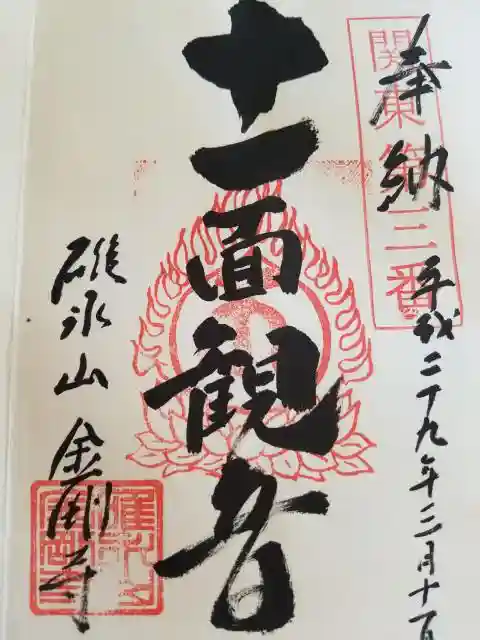 奉納
関東第三番
平成二十九年三月十
十一面観音
碓氷山
金剛寺